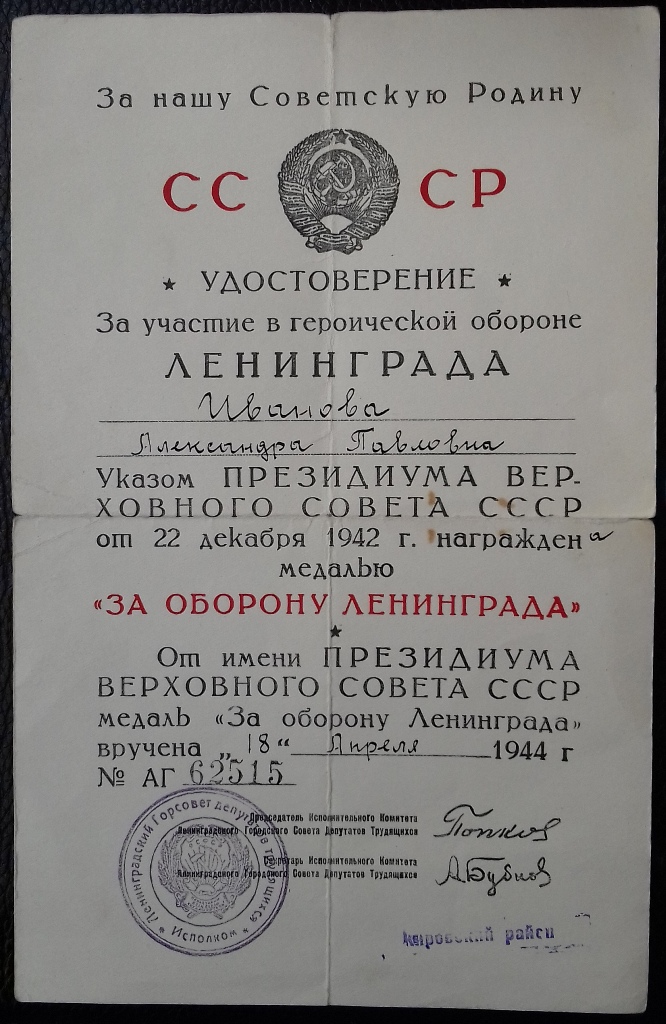 За нашу Советскую Родину
СС СР
УДОСТОВЕРЕНИЕ
За участие в героической обороне
ЛЕНИНГРАДА
Иванова
Александра Павловна
Указом ПРЕЗИДИУМА ВЕР-
ХОВНОГО СОВЕТА СССР
от 22 декабря 1942 г. награждена
медалью
«ЗА ОБОРОНУ ЛЕНИНГРАДА»
От имени ПРЕЗИДИУМА
ВЕРХОВНОГО СОВЕТА СССР
медаль «За оборону Ленинграда»
вручена „18“ Апреля 1944 г
№ АГ 62515
Председатель Исполнительного Комитета
Ленинградского Городского Совета Депутатов Трудящихся
Попков
Секретарь Исполнительного Комитета
Ленинградского Городского Совета Депутатов Трудящихся
А. Бубнов
Ленинградский Горсовет депутатов трудящихся
Исполком
Кировский райсо